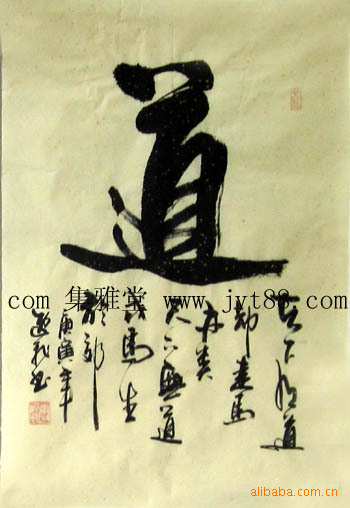 道
天下有道
却走馬
以粪
天下無道
戎馬生
於郊
庚寅年
書
com 集雅堂 www.jyt88.com
alibaba.com.cn